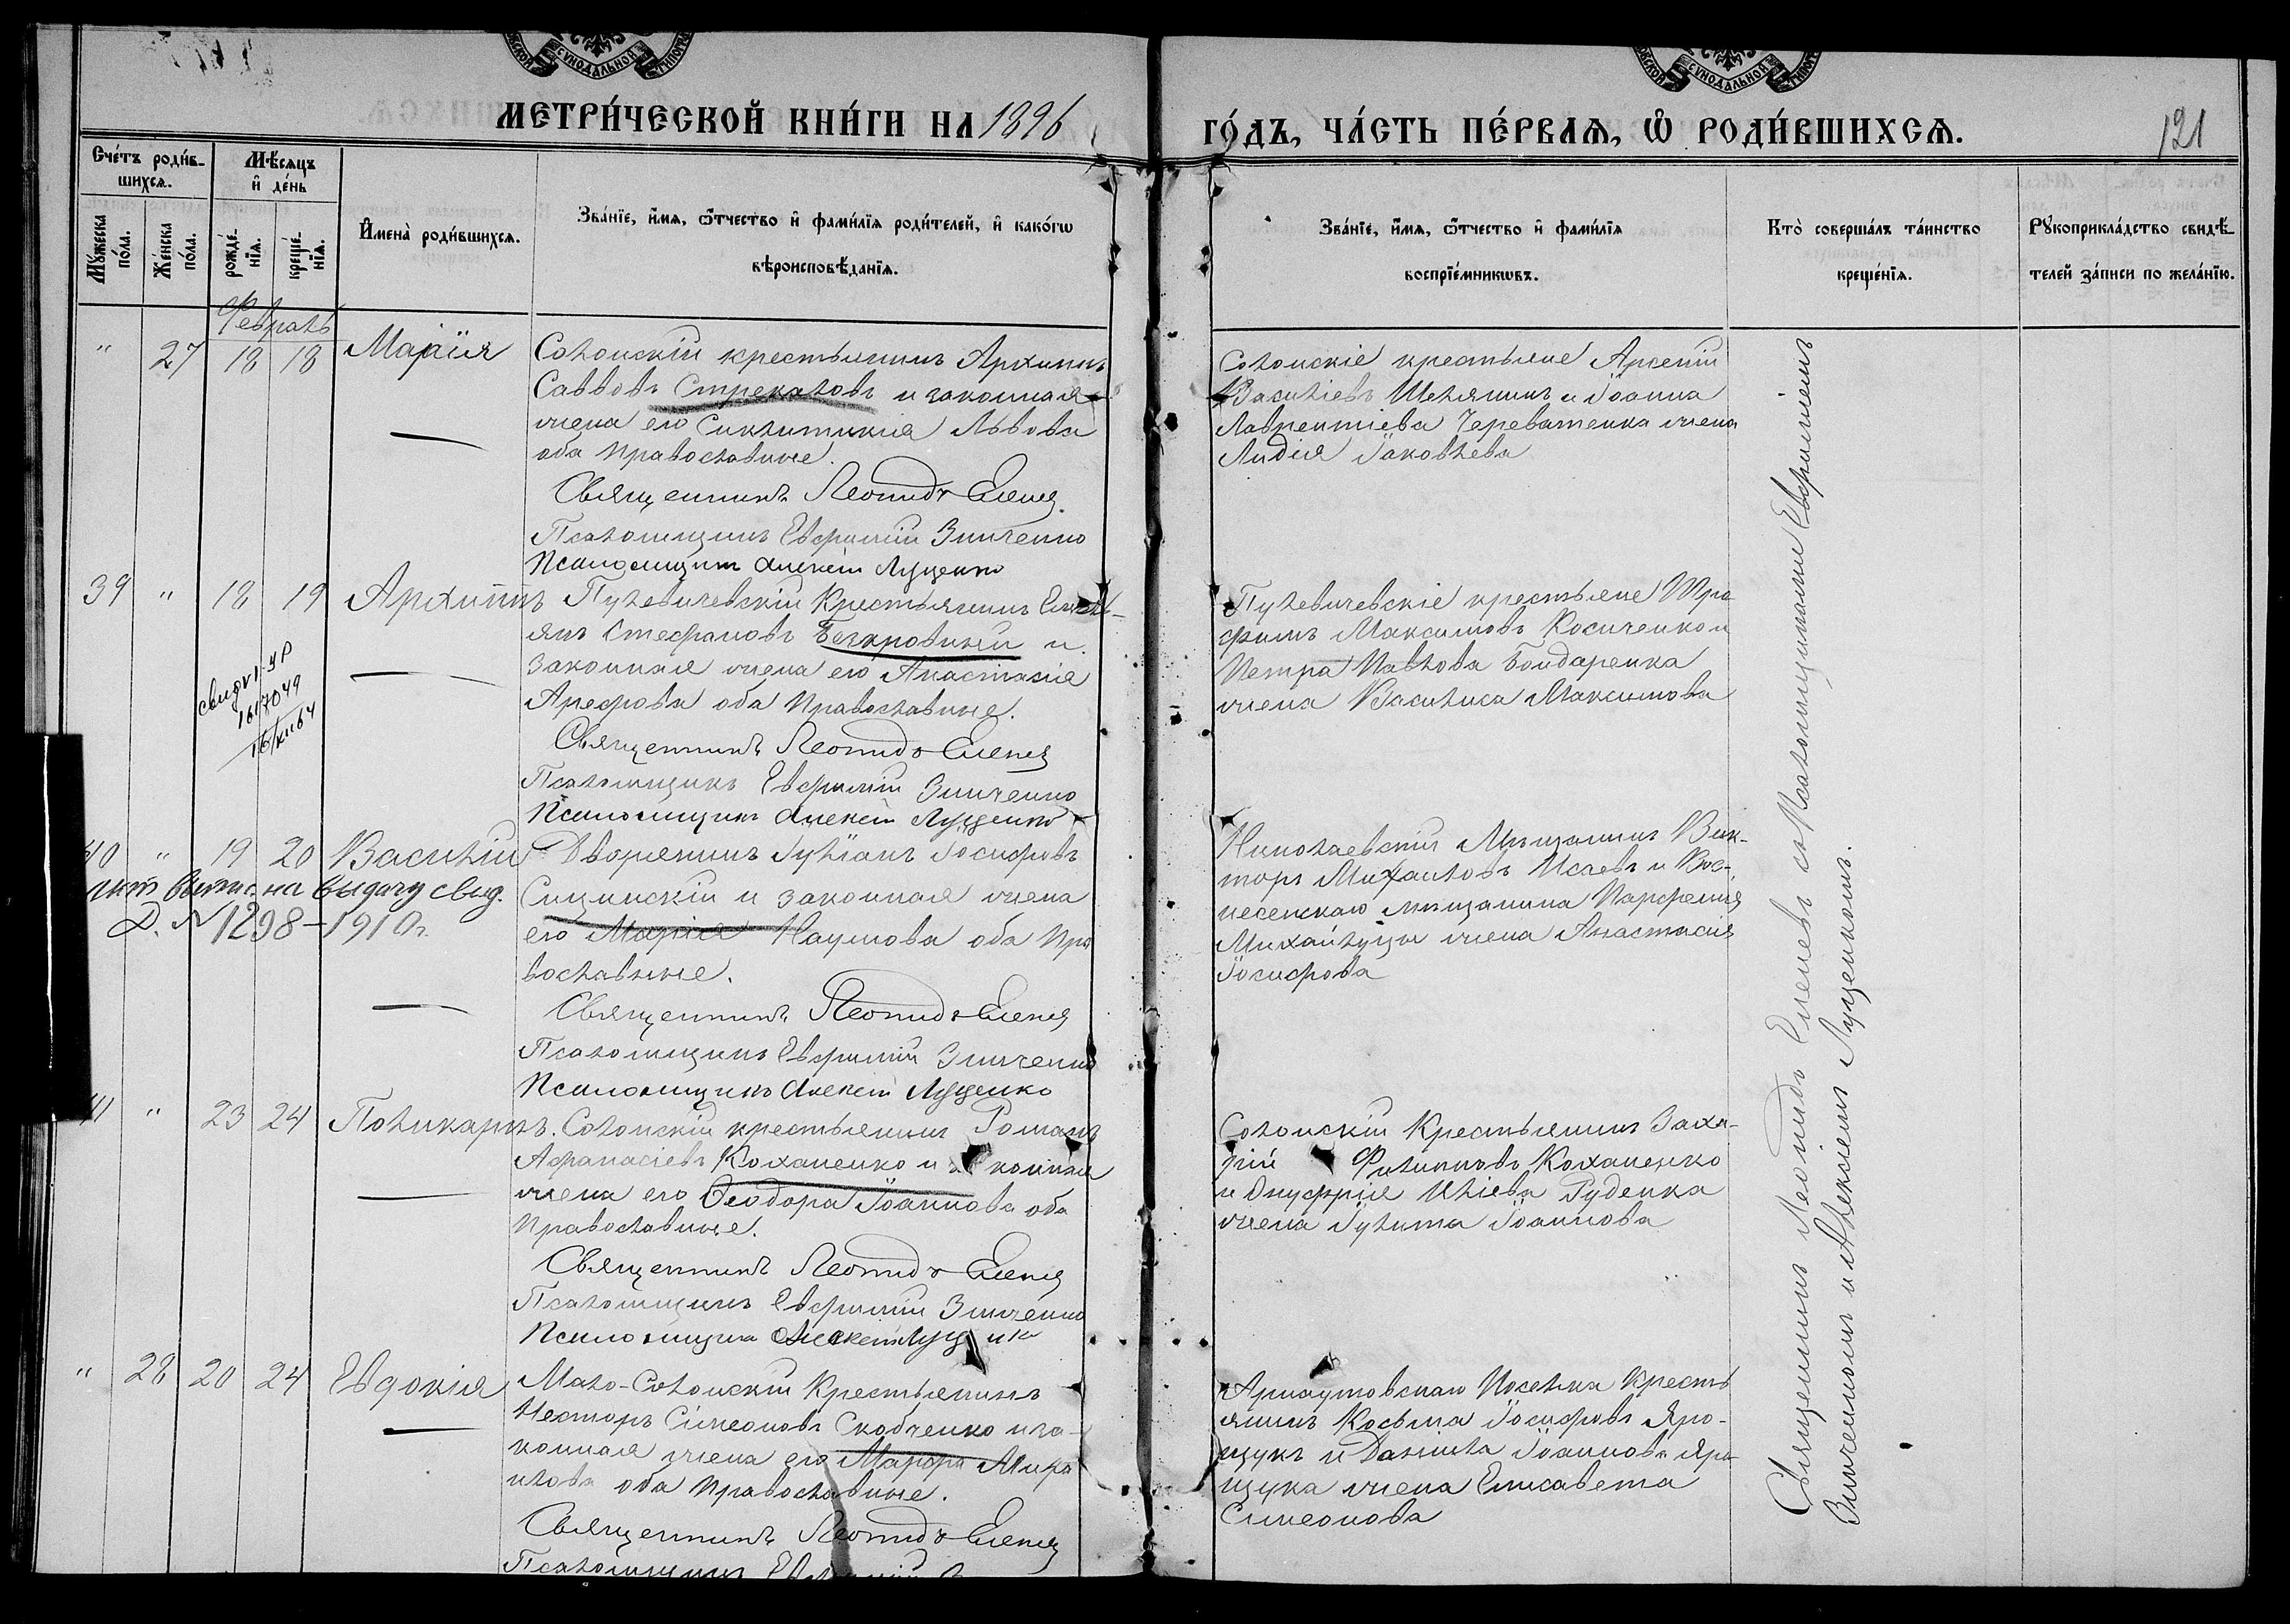 МЕТРИ́ЧЕСКОЙ КНИ́ГИ НА 1896 ГО́ДЪ, ЧА́СТЬ ПЕ́РВАѦ, Ѿ РОДИ́ВШИХСѦ.
121
Сче́тъ роди́в-
шихсѧ.
Мѣ́сѧцъ
и҆ де́нь
Мꙋ́жеска
по́ла.
Же́нска
по́ла.
рожде́-
нїѧ.
креще́-
нїѧ.
И҆мена̀ роди́вшихсѧ.
Зва́нїе, и҆́мѧ, ѻ҆́тчество и҆ фами́лїѧ роди́телей, и҆ како́гѡ
вѣроисповѣ́данїѧ.
Зва́нїе, и҆́мѧ, ѻ҆́тчество и҆ фами́лїѧ
воспрїе́мникѡвъ.
Кто̀ соверша́лъ та́инство
креще́нїѧ.
Рꙋкоприкла́дство свидѣ́-
телей за́писи по жела́нїю.
Февраль
" 27 18 18 Марія
Солонскій крестьянинъ Архиппъ
Саввовъ Стрекаловъ и законная
жена его Синклитикія Львова
оба православные.
Священникъ Леонидъ Еленев
Псаломщикъ Евфимій Зинченко
Псаломщикъ Алексій Луценко
Солонскіе крестьяне Арсеній
Васильевъ Шелякинъ и Іоанна
Лаврентіева Череватенка жена
Лидія Іаковлева
39 " 18 19 Архиппъ
Пулевичевскій Крестьянинъ Емель-
янъ Стефановъ Безкровный и
законная жена его Анастасія
Арефова оба православные.
Священникъ Леонидъ Еленев
Псаломщикъ Евфимій Зинченко
Псаломщикъ Алексій Луценко
Пулевичевскіе крестьяне Тро
фимъ Максимовъ Косиченко и
Петра Павлова Бондаренка
жена Василиса Максимова
40 " 19 20 Василій
на выдачу свид.
Д. № 1298–1910 г.
Дворянинъ Іуліанъ Іосифовъ
Сицинскій и законная жена
его Марія Наумова оба пра
вославные.
Священникъ Леонидъ Еленев
Псаломщикъ Евфимій Зинченко
Псаломщикъ Алексій Луценко
Николаевскій Мѣщанинъ Вик-
торъ Михаиловъ Исаевъ и Воз-
несенскаго мѣщанина Парфенія
Михайлуцы жена Анастасія
Іосифова
41 " 23 24 Поликарпъ
Солонскій крестьянинъ Романъ
Афанасіевъ Коханенко и законная
жена его Феодора Іоаннова оба
православные.
Священникъ Леонидъ Еленев
Псаломщикъ Евфимій Зинченко
Псаломщикъ Алексій Луценко
Солонскій Крестьянинъ Заха-
рій Филипповъ Коханенко
и Онуфрія Иліева Руденка
жена Іулита Іоаннова
" 28 20 24 Евдокія
Мало-Солонскій Крестьянинъ
Несторъ Сімеоновъ Скобченко и за-
конная жена его Марфа
оба православные.
Священникъ Леонидъ Еленев
Псаломщикъ Евфимій
Арнаутовскаго Поселка Кресть
янинъ Косьма Іосифовъ Яро-
щукъ и Даніила Іоаннова Яро-
щука жена Елисавета
Симеонова
Священникъ Леонидъ Еленевъ съ Псаломщиками Евфиміемъ
Зинченкомъ и Алексіемъ Луценкомъ.